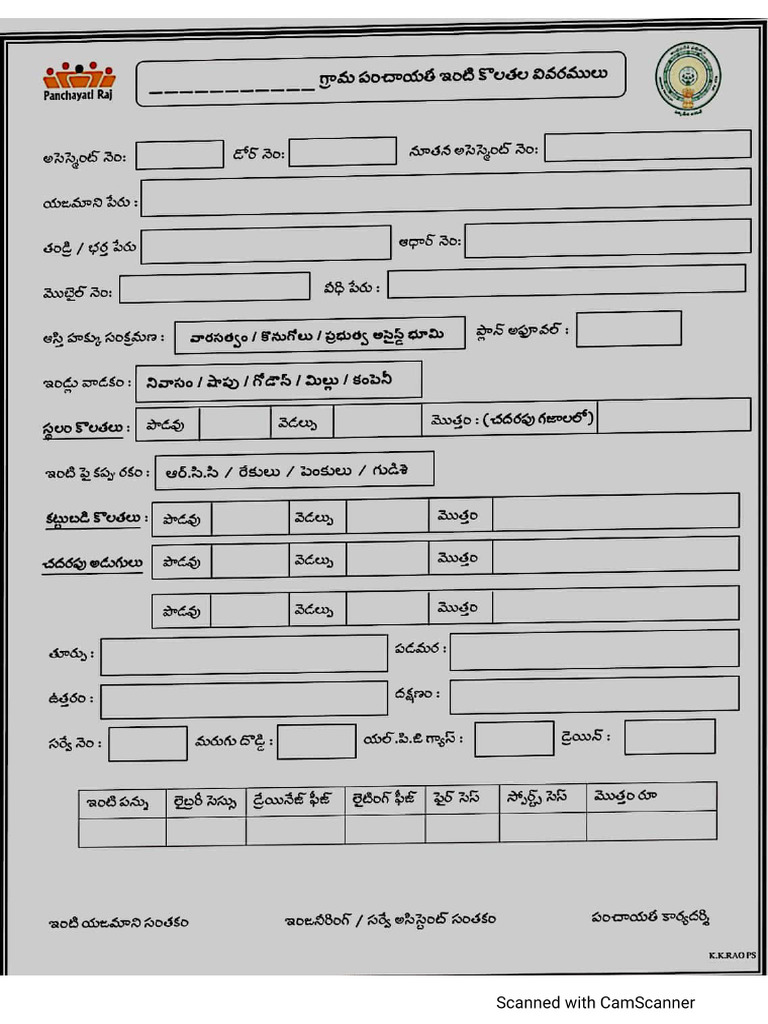 Panchayati Raj
____________ గ్రామ పంచాయతీ ఇంటి కొలతల వివరములు
అసెస్మెంట్ నెం: డోర్ నెం: నూతన అసెస్మెంట్ నెం:
యజమాని పేరు :
తండ్రి / భర్త పేరు ఆధార్ నెం:
మొబైల్ నెం: వీధి పేరు :
ఆస్తి హక్కు సంక్రమణ : వారసత్వం / కొనుగోలు / ప్రభుత్వ అసైన్డ్ భూమి ప్లాన్ అప్రూవల్ :
ఇండ్లు వాడకం : నివాసం / షాపు / గోడౌన్ / మిల్లు / కంపెనీ
స్థలం కొలతలు : పొడవు వెడల్పు మొత్తం : (చదరపు గజాలలో)
ఇంటి పై కప్పు రకం : ఆర్.సి.సి / రేకులు / పెంకులు / గుడిశె
కట్టుబడి కొలతలు : పొడవు వెడల్పు మొత్తం
చదరపు అడుగులు పొడవు వెడల్పు మొత్తం
పొడవు వెడల్పు మొత్తం
తూర్పు : పడమర :
ఉత్తరం : దక్షణం :
సర్వే నెం : మరుగు దొడ్డి : యల్.పి.జి గ్యాస్ : డ్రెయిన్ :
ఇంటి పన్ను లైబ్రరీ సెస్సు డ్రేయినేజ్ ఫీజ్ లైటింగ్ ఫీజ్ ఫైర్ సెస్ స్పోర్ట్స్ సెస్ మొత్తం రూ
ఇంటి యజమాని సంతకం ఇంజనీరింగ్ / సర్వే అసిస్టెంట్ సంతకం పంచాయతీ కార్యదర్శి
K.K.RAO PS
Scanned with CamScanner